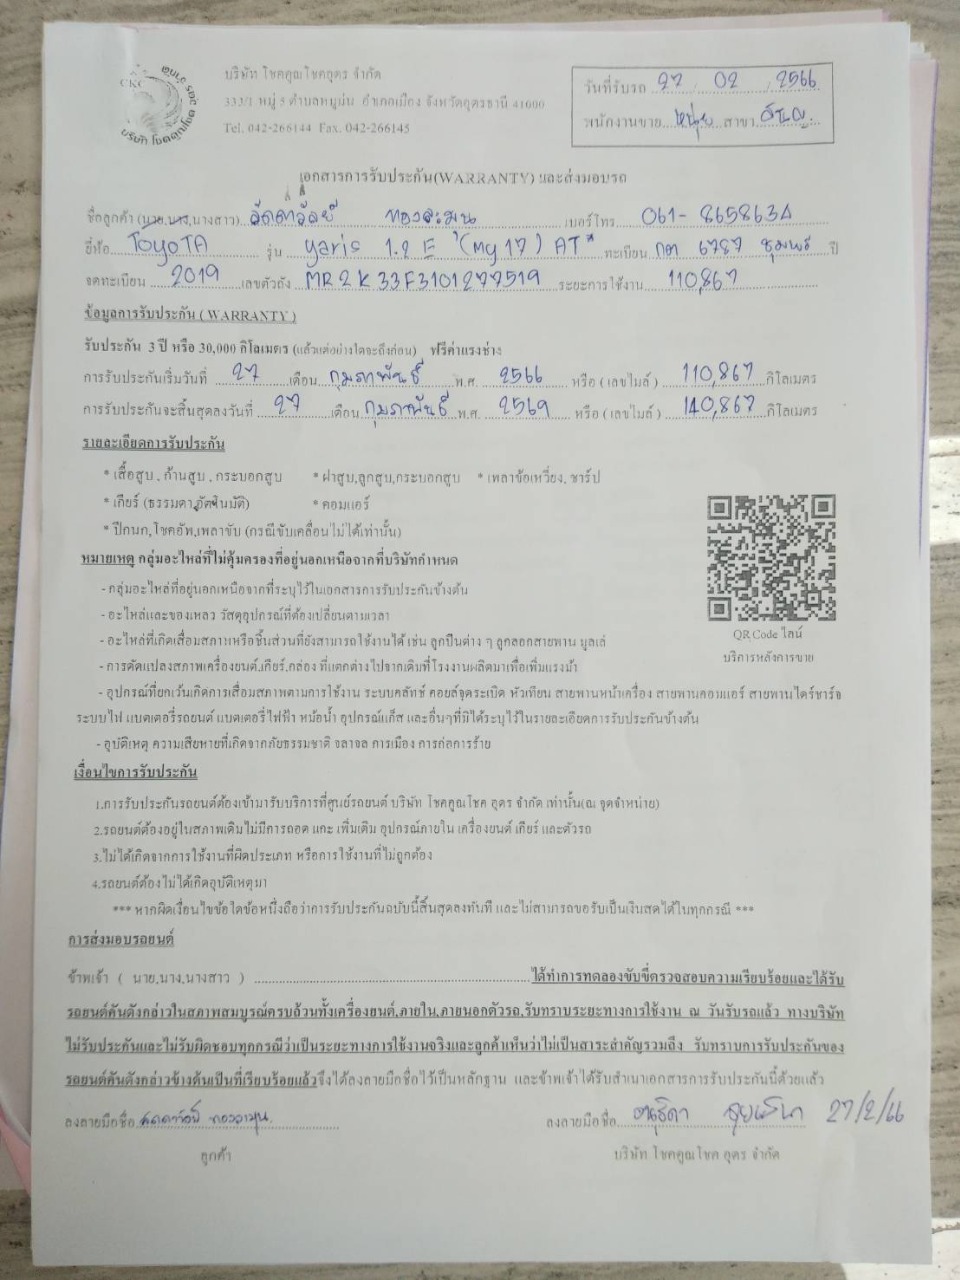 CKC
บริษัท โชคคูณโชคอุดร จำกัด
333/1 หมู่ 5 ตำบลหมูม่น อำเภอเมือง จังหวัดอุดรธานี 41000
Tel. 042-266144 Fax. 042-266145
วันที่รับรถ 27 / 02 / 2566
พนักงานขาย สาขา
เอกสารการรับประกัน(WARRANTY) และส่งมอบรถ
ชื่อลูกค้า (นาย,นาง,นางสาว) ลัดดาวัลย์ เบอร์โทร 061-8658634
ยี่ห้อ TOYOTA รุ่น yaris 1.2 E (My 17) AT* ทะเบียน กต 6787 ชุมพร ปี
จดทะเบียน 2019 เลขตัวถัง MR2K33F3101277519 ระยะการใช้งาน 110,867
ข้อมูลการรับประกัน ( WARRANTY )
รับประกัน 3 ปี หรือ 30,000 กิโลเมตร (แล้วแต่อย่างใดจะถึงก่อน) ฟรีค่าแรงช่าง
การรับประกันเริ่มวันที่ 27 เดือน กุมภาพันธ์ พ.ศ. 2566 หรือ ( เลขไมล์ ) 110,867 กิโลเมตร
การรับประกันจะสิ้นสุดลงวันที่ 27 เดือน กุมภาพันธ์ พ.ศ. 2569 หรือ ( เลขไมล์ ) 140,867 กิโลเมตร
รายละเอียดการรับประกัน
* เสื้อสูบ , ก้านสูบ , กระบอกสูบ * ฝาสูบ,ลูกสูบ,กระบอกสูบ * เพลาข้อเหวี่ยง, ชาร์ป
* เกียร์ (ธรรมดา,อัตโนมัติ) * คอมแอร์
* ปีกนก,โชคอัพ,เพลาขับ (กรณีขับเคลื่อนไม่ได้เท่านั้น)
หมายเหตุ กลุ่มอะไหล่ที่ไม่คุ้มครองที่อยู่นอกเหนือจากที่บริษัทกำหนด
- กลุ่มอะไหล่ที่อยู่นอกเหนือจากที่ระบุไว้ในเอกสารการรับประกันข้างต้น
- อะไหล่และของเหลว วัสดุอุปกรณ์ที่ต้องเปลี่ยนตามเวลา
- อะไหล่ที่เกิดเสื่อมสภาพหรือชิ้นส่วนที่ยังสามารถใช้งานได้ เช่น ลูกปืนต่าง ๆ ลูกลอกสายพาน มูลเล่
- การดัดแปลงสภาพเครื่องยนต์,เกียร์,กล่อง ที่แตกต่างไปจากเดิมที่โรงงานผลิตมาเพื่อเพิ่มแรงม้า
- อุปกรณ์ที่ยกเว้นเกิดการเสื่อมสภาพตามการใช้งาน ระบบคลัทช์ คอยล์จุดระเบิด หัวเทียน สายพานหน้าเครื่อง สายพานคอมแอร์ สายพานไดร์ชาร์จ
ระบบไฟ แบตเตอรี่รถยนต์ แบตเตอรี่ไฟฟ้า หม้อน้ำ อุปกรณ์แก๊ส และอื่นๆที่มิได้ระบุไว้ในรายละเอียดการรับประกันข้างต้น
- อุบัติเหตุ ความเสียหายที่เกิดจากภัยธรรมชาติ จลาจล การเมือง การก่อการร้าย
QR Code ไลน์
บริการหลังการขาย
เงื่อนไขการรับประกัน
1.การรับประกันรถยนต์ต้องเข้ามารับบริการที่ศูนย์รถยนต์ บริษัท โชคคูณโชค อุดร จำกัด เท่านั้น(ณ จุดจำหน่าย)
2.รถยนต์ต้องอยู่ในสภาพเดิมไม่มีการถอด แกะ เพิ่มเติม อุปกรณ์ภายใน เครื่องยนต์ เกียร์ และตัวรถ
3.ไม่ได้เกิดจากการใช้งานที่ผิดประเภท หรือการใช้งานที่ไม่ถูกต้อง
4.รถยนต์ต้องไม่ได้เกิดอุบัติเหตุมา
*** หากผิดเงื่อนไขข้อใดข้อหนึ่งถือว่าการรับประกันฉบับนี้สิ้นสุดลงทันที และไม่สามารถขอรับเป็นเงินสดได้ในทุกกรณี ***
การส่งมอบรถยนต์
ข้าพเจ้า ( นาย,นาง,นางสาว ) ได้ทำการทดลองขับขี่ตรวจสอบความเรียบร้อยและได้รับ
รถยนต์คันดังกล่าวในสภาพสมบูรณ์ครบถ้วนทั้งเครื่องยนต์,ภายใน,ภายนอกตัวรถ,รับทราบระยะทางการใช้งาน ณ วันรับรถแล้ว ทางบริษัท
ไม่รับประกันและไม่รับผิดชอบทุกกรณีว่าเป็นระยะทางการใช้งานจริงและลูกค้าเห็นว่าไม่เป็นสาระสำคัญรวมถึง รับทราบการรับประกันของ
รถยนต์คันดังกล่าวข้างต้นเป็นที่เรียบร้อยแล้วจึงได้ลงลายมือชื่อไว้เป็นหลักฐาน และข้าพเจ้าได้รับสำเนาเอกสารการรับประกันนี้ด้วยแล้ว
ลงลายมือชื่อ ลงลายมือชื่อ 27/2/66
ลูกค้า บริษัท โชคคูณโชค อุดร จำกัด